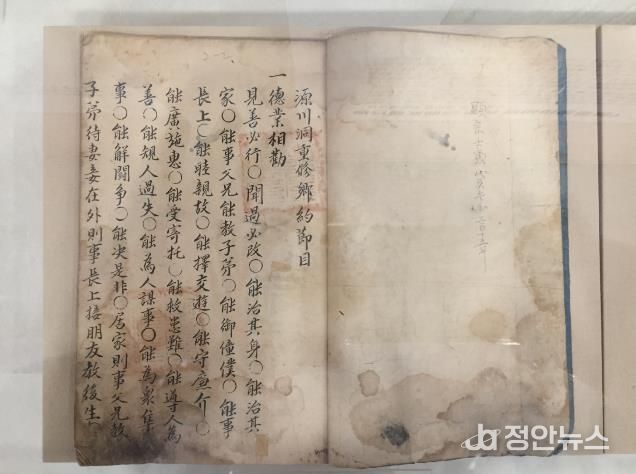 源川洞重修鄉約節目
一德業相勸
見善必行○聞過必改○能治其身○能治其
家○能事父兄能教子弟○能御僮僕○能事
長上○能睦親故○能擇交遊○能守廉介○
能廣施惠○能受寄托○能救患難○能導人為
善○能規人過失○能為人謀事○能為衆集
事○能解鬪爭○能决是非○居家則事父兄教
子弟待妻妾在外則事長上接朋友教後生
정안뉴스